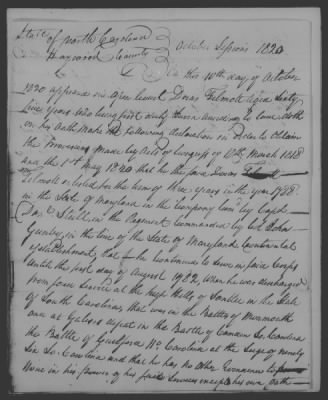 State of North Carolina
Haywood County October Sessions 1820
On the 10th day of October
1820 appeared in open Court Dorus Aged Sixty
five years who being first duly Sworn According to Law doth
on his Oath Make the following declaration in order to Obtain
the Provisions Made by Acts of Congress of 18th March 1818
and the 1st May 1820 that he the said Dorus
inlisted for the term of three years in the year
in the State of Maryland in the Company Comd by Capt
in the Regiment Commanded by Col John
Gunby in the line of the State of Maryland Continental
establishment, that he Continued to Serve in said Corps
Until the first day of August 1782 When he was discharged
from said Service at the High Hills of Santee in the State
of South Carolina, that was in the Battles of Monmouth
one at in the Battle of Camden So. Carolina
the Battle of Guilford No. Carolina at the Siege of Ninety
Six So. Carolina and that he has no Other
None in his power of his said Services except his own Oath